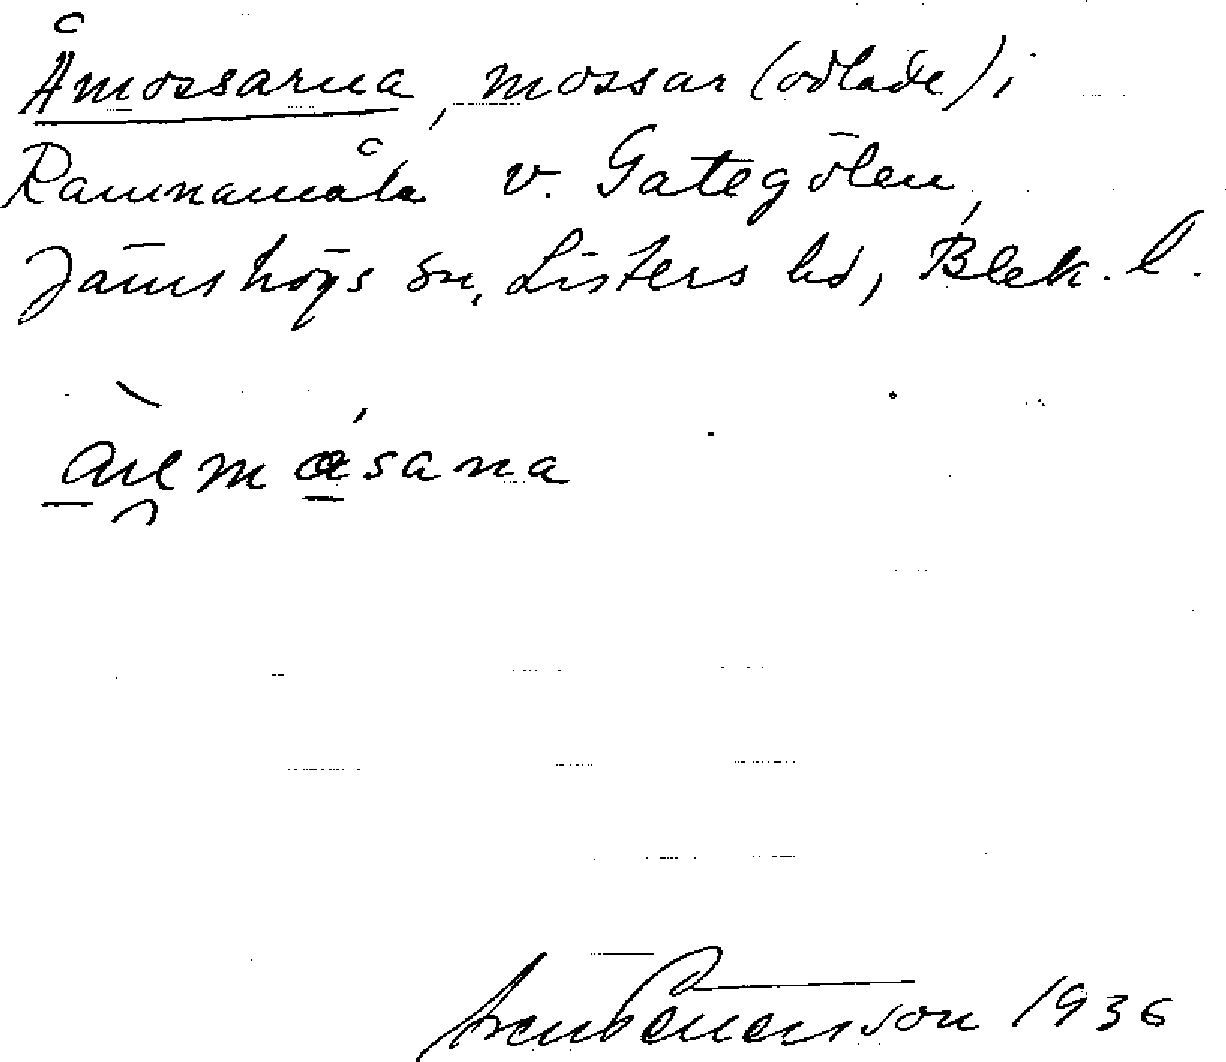 Åmossarna, mossar (odlade) i
Ramnamåla v. Gategölen,
Jämshögs sn, Listers hd, Blek. l.
åu̯emåsana
Sven Benson 1936